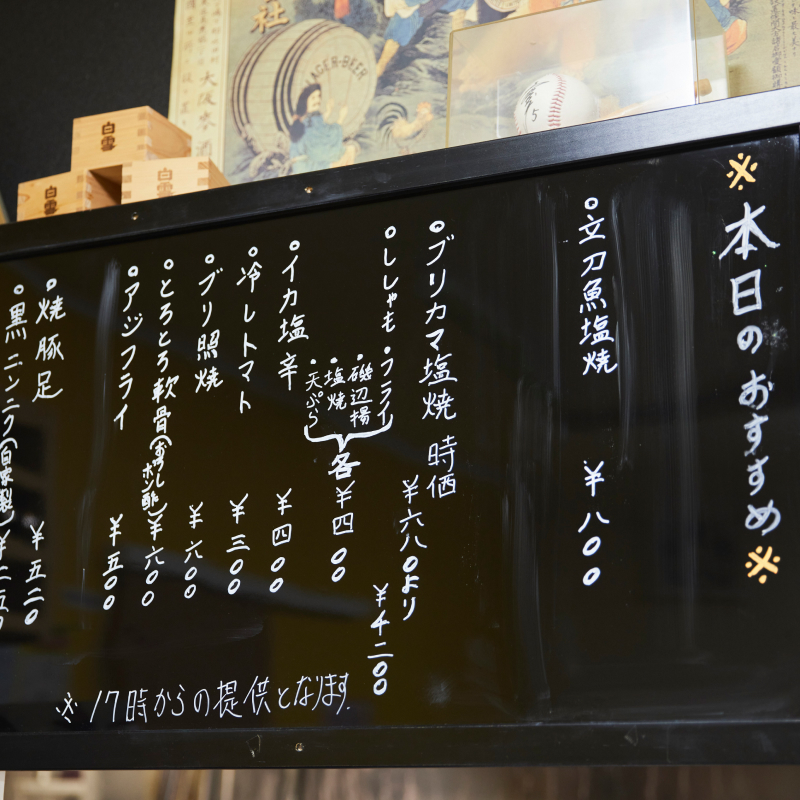 ※本日のおすすめ※
・文刀魚塩焼 ¥八〇〇
・ブリカマ塩焼 時価
¥六八〇より
¥千二〇〇
・ししゃも
・フライ
・磯辺揚
・塩焼
・天ぷら
各¥四〇〇
・イカ塩辛 ¥四〇〇
・冷しトマト ¥三〇〇
・ブリ照焼 ¥六〇〇
・とろとろ軟骨(おろしポン酢) ¥六〇〇
・アジフライ ¥五〇〇
・焼豚足 ¥五二〇
・黒ニンニク(自家製)
※17時からの提供となります。
白雪
白雪
白雪
社
LAGER-BEER
大阪麥酒
5